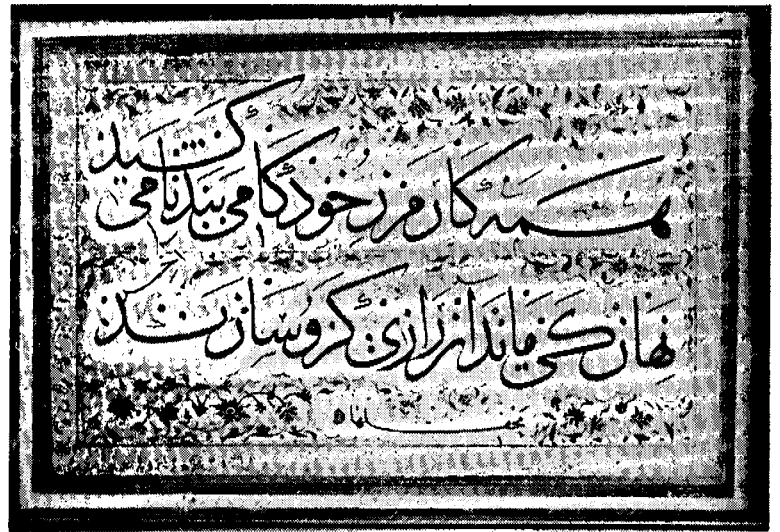 همه کارم ز خود کامی ببدنامی کشید
نهان کی ماند آن رازی کزو سازند